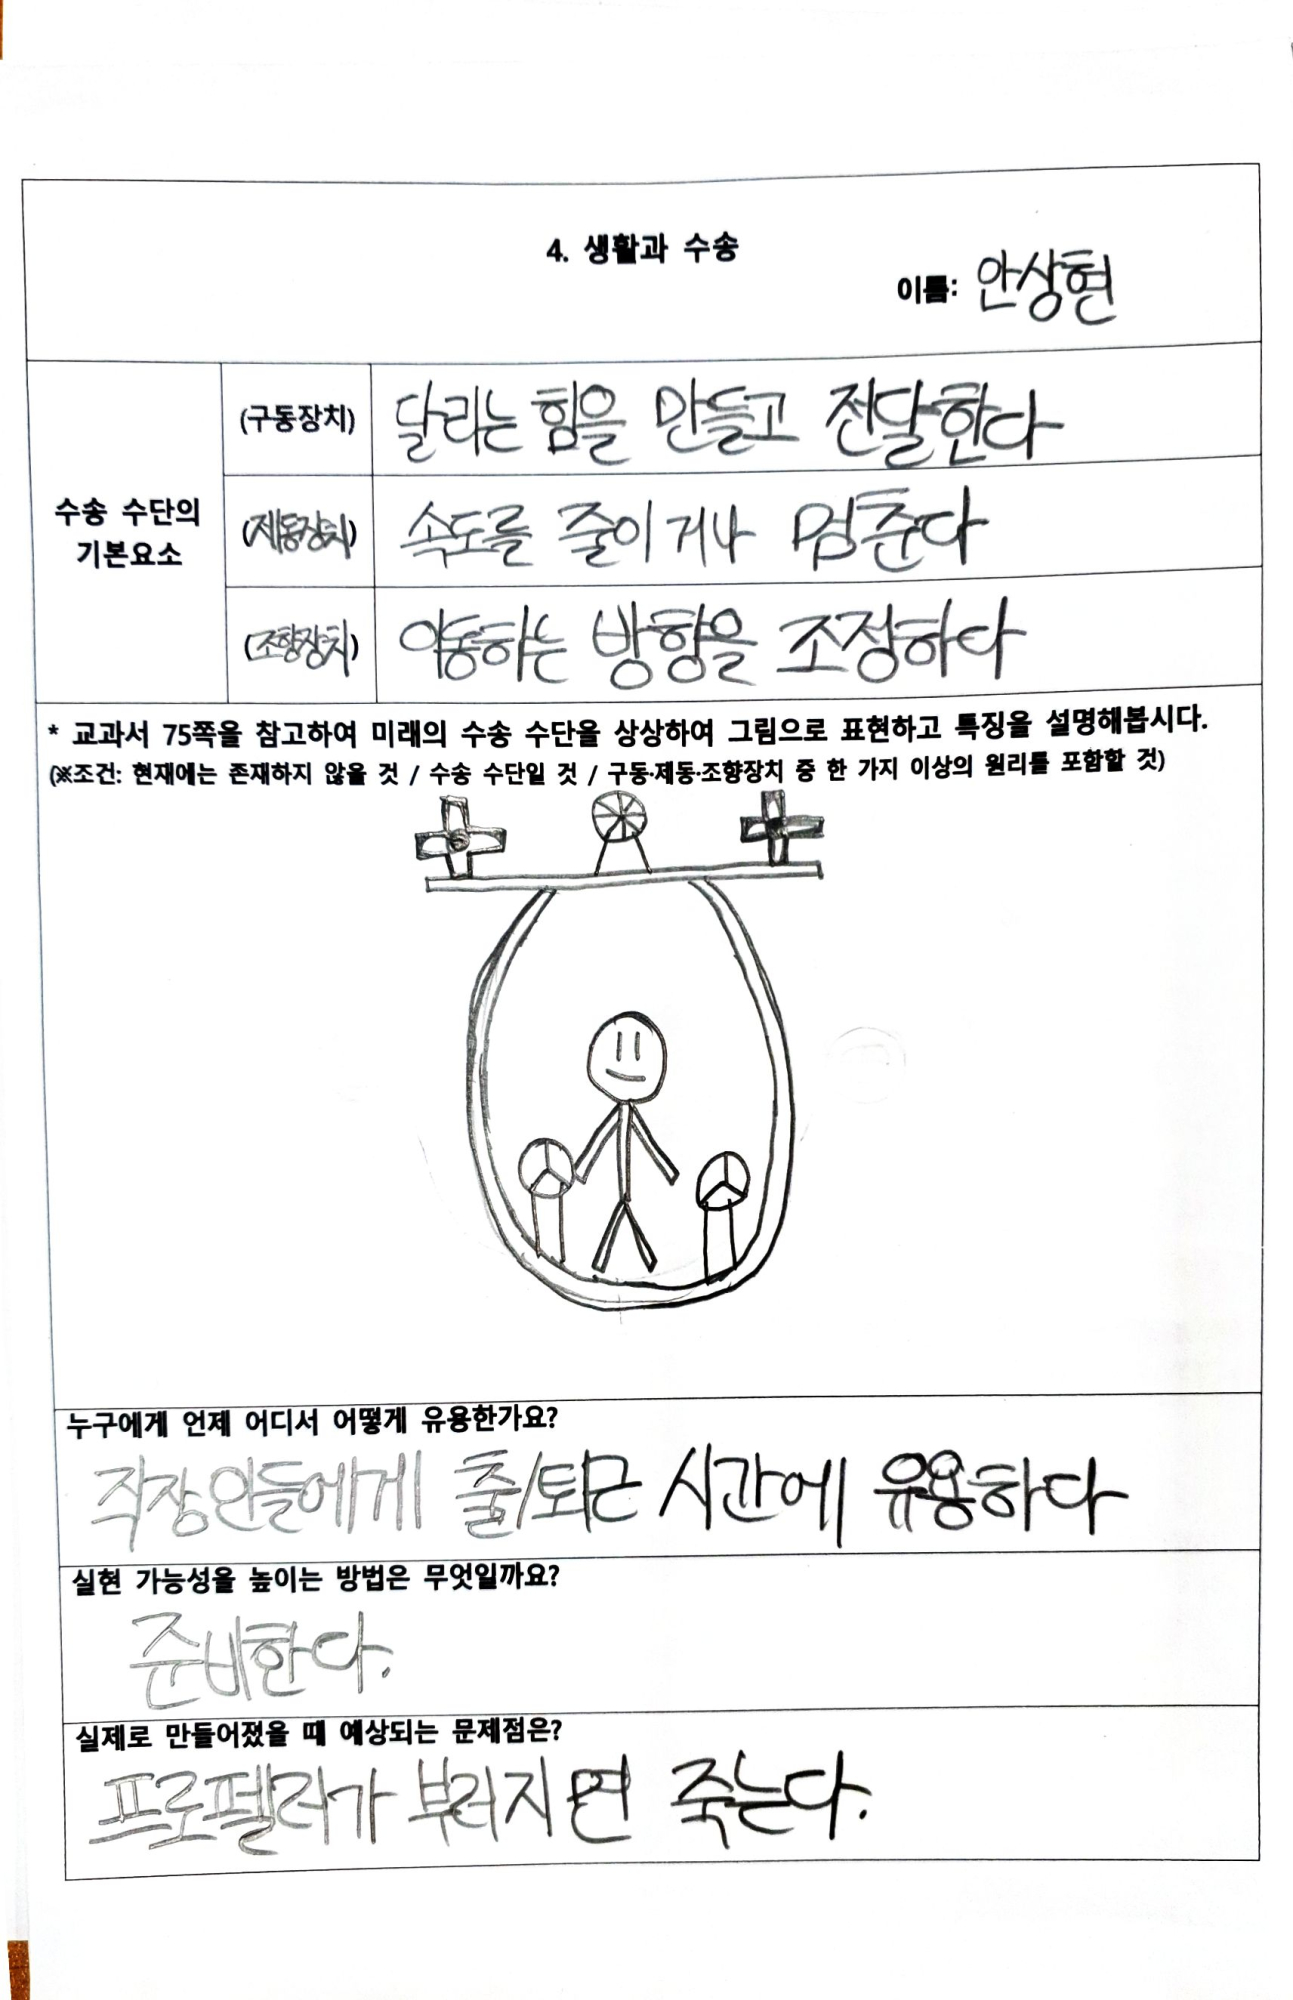 4. 생활과 수송
이름: 안상현
(구동장치) 달리는 힘을 만들고 전달한다
수송 수단의
기본요소
(제동장치) 속도를 줄이거나 멈춘다
(조향장치) 이동하는 방향을 조정하다
* 교과서 75쪽을 참고하여 미래의 수송 수단을 상상하여 그림으로 표현하고 특징을 설명해봅시다.
(※조건: 현재에는 존재하지 않을 것 / 수송 수단일 것 / 구동·제동·조향장치 중 한 가지 이상의 원리를 포함할 것)
누구에게 언제 어디서 어떻게 유용한가요?
직장인들에게 출/퇴근 시간에 유용하다
실현 가능성을 높이는 방법은 무엇일까요?
준비한다.
실제로 만들어졌을 때 예상되는 문제점은?
프로펠러가 부러지면 죽는다.